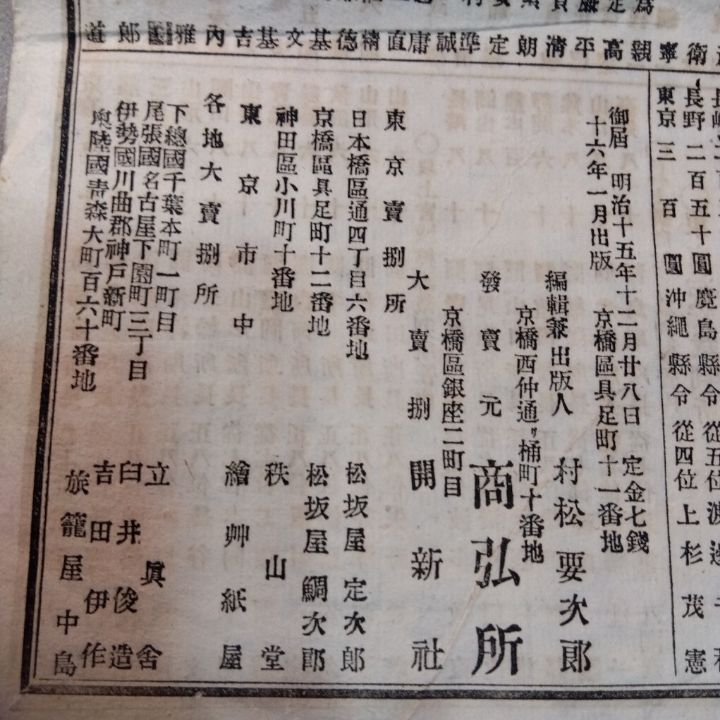 長野二百五十圓 鹿島縣令 從五位渡邊千秋
東京三百圓 沖繩縣令 從四位上杉茂憲
衛寧親高平清朗定準誠庸直精德基文基吉內雅郎道
御屆 明治十五年十二月廿八日 定金七錢
十六年一月出版
京橋區具足町十一番地
編輯兼出版人 村松要次郎
京橋西仲通リ桶町十番地
發賣元 商弘所
京橋區銀座二町目
大賣捌 開新社
東京賣捌所
日本橋區通四丁目六番地 松坂屋定次郎
京橋區具足町十二番地 松坂屋鯛次郎
神田區小川町十番地 秩山堂
東京市中 繪艸紙屋
各地大賣捌所
下總國千葉本町一町目 立眞舍
尾張國名古屋下園町三丁目 臼井俊造
伊勢國川曲郡神戸新町 吉田伊作
奧陸國青森大町百六十番地 旅籠屋中島